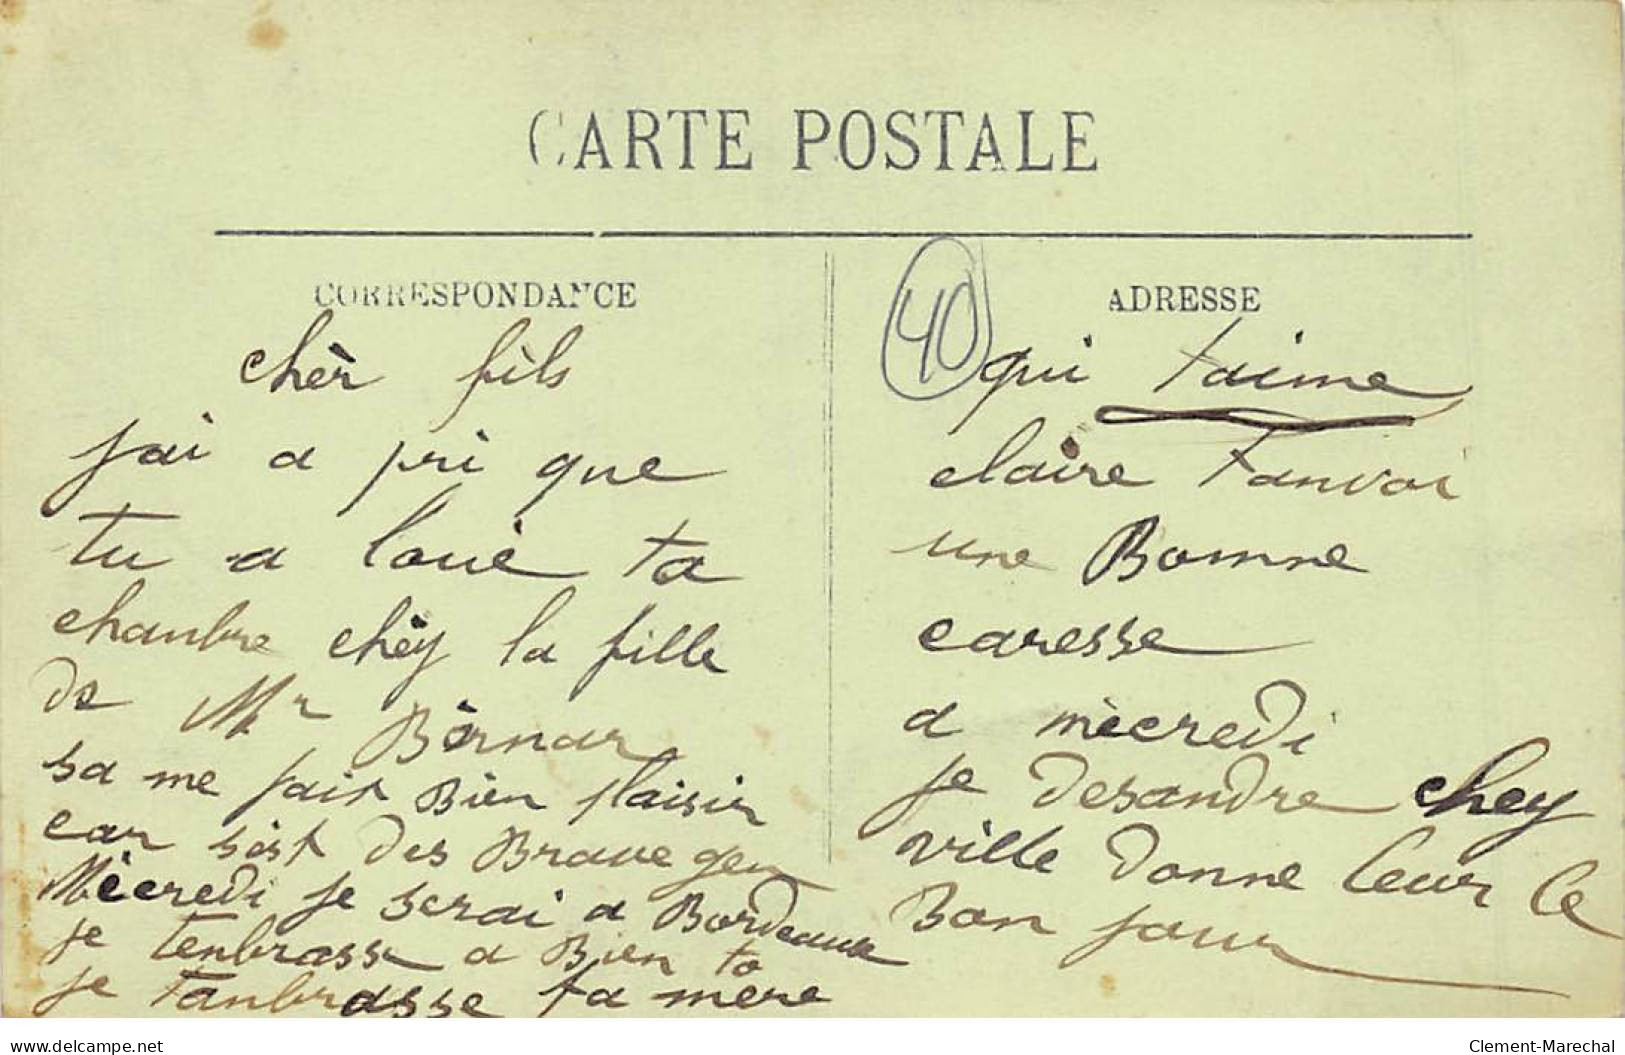 CARTE POSTALE
CORRESPONDANCE
chèr fils
jai a pri que
tu a loué ta
chanbre chèy la fille
de Mr Bèrnar
sa me fait Bien plaisir
car sèst des Brave gen
Mècredi je serai a Bordeaux
je tenbrasse a Bien to
je tanbrasse ta mère
40
ADRESSE
qui taime
claire tanvoi
une Bonne
caresse
a mècredi
je desandre chey
ville donne leur le
Bon jour
www.delcampe.net
Clement-Marechal